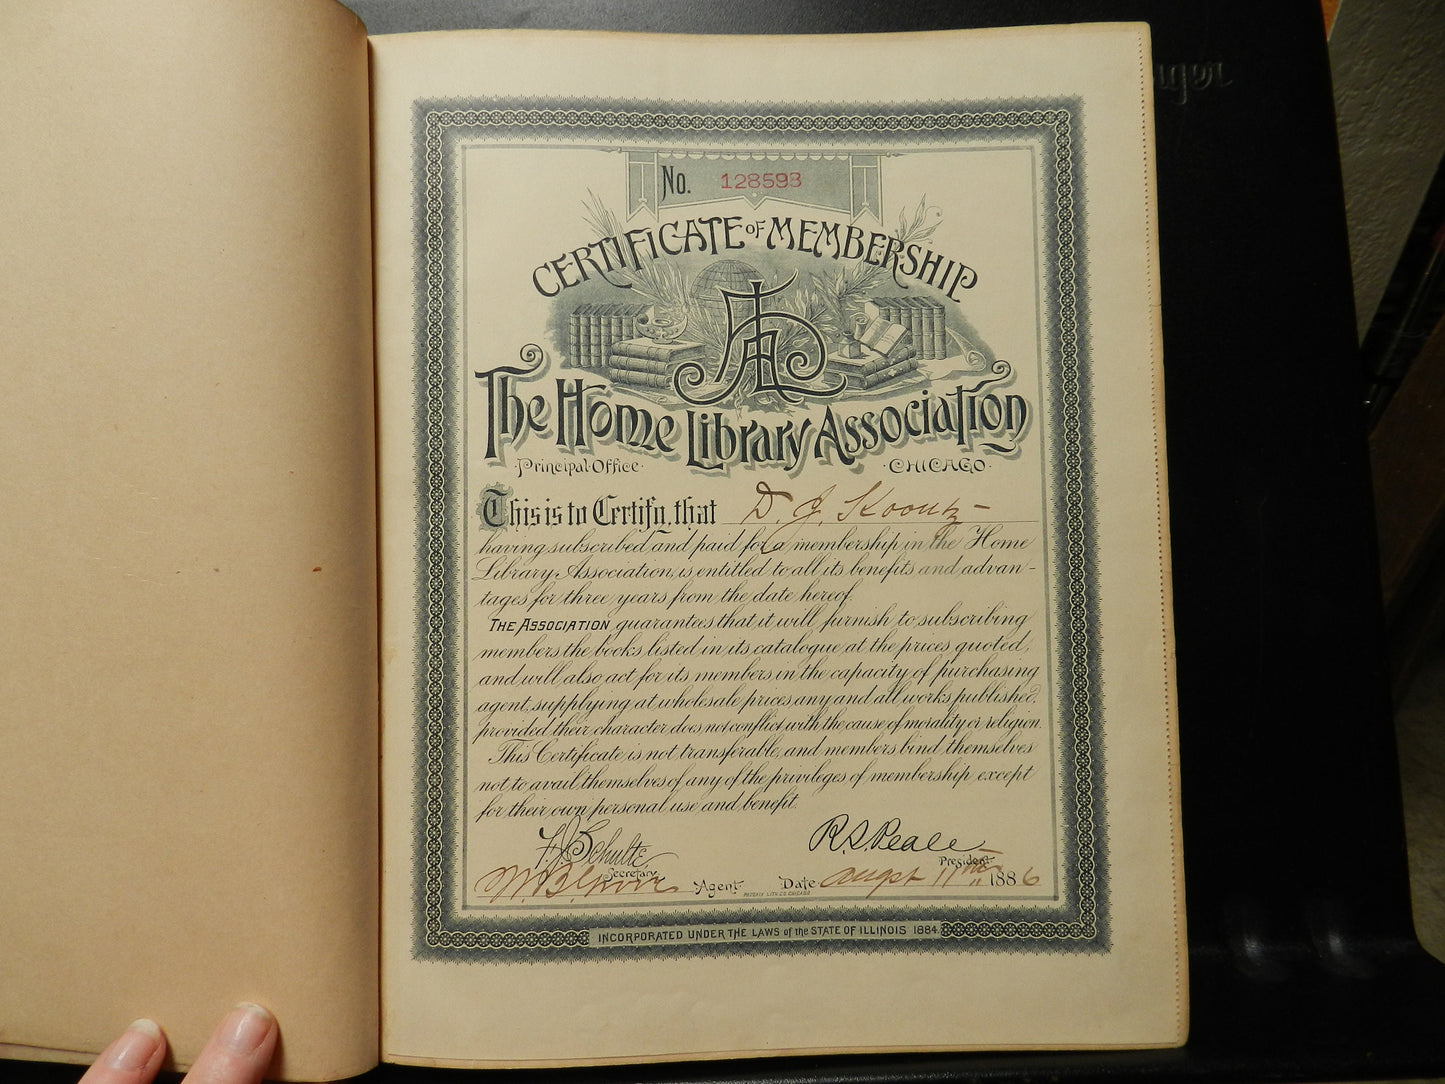 No. 128593
CERTIFICATE OF MEMBERSHIP
HLA
The Home Library Association
Principal Office CHICAGO
This is to Certify, that D. J. Koontz
having subscribed and paid for a membership in the Home
Library Association, is entitled to all its benefits and advan-
tages for three years from the date hereof.
THE ASSOCIATION guarantees that it will furnish to subscribing
members the books listed in its catalogue at the prices quoted,
and will also act for its members in the capacity of purchasing
agent, supplying at wholesale prices any and all works published,
provided their character does not conflict with the cause of morality or religion.
This Certificate is not transferable, and members bind themselves
not to avail themselves of any of the privileges of membership except
for their own personal use and benefit.
F. J. Schulte R. S. Peale
Secretary President
Agent Date 17th 1886
PHOENIX LITH CO. CHICAGO
INCORPORATED UNDER THE LAWS of the STATE OF ILLINOIS 1884.